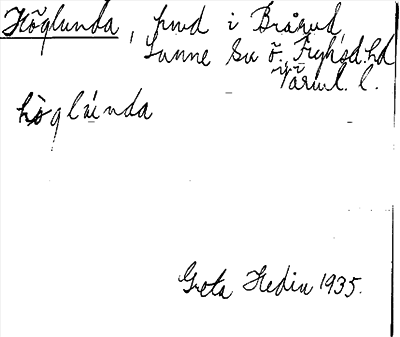 Höglunda, prud i Bråröd
Sunne Sn Ö. Fryksd. hd
Värml. l.
høglúnda
Greta Hedin 1935.